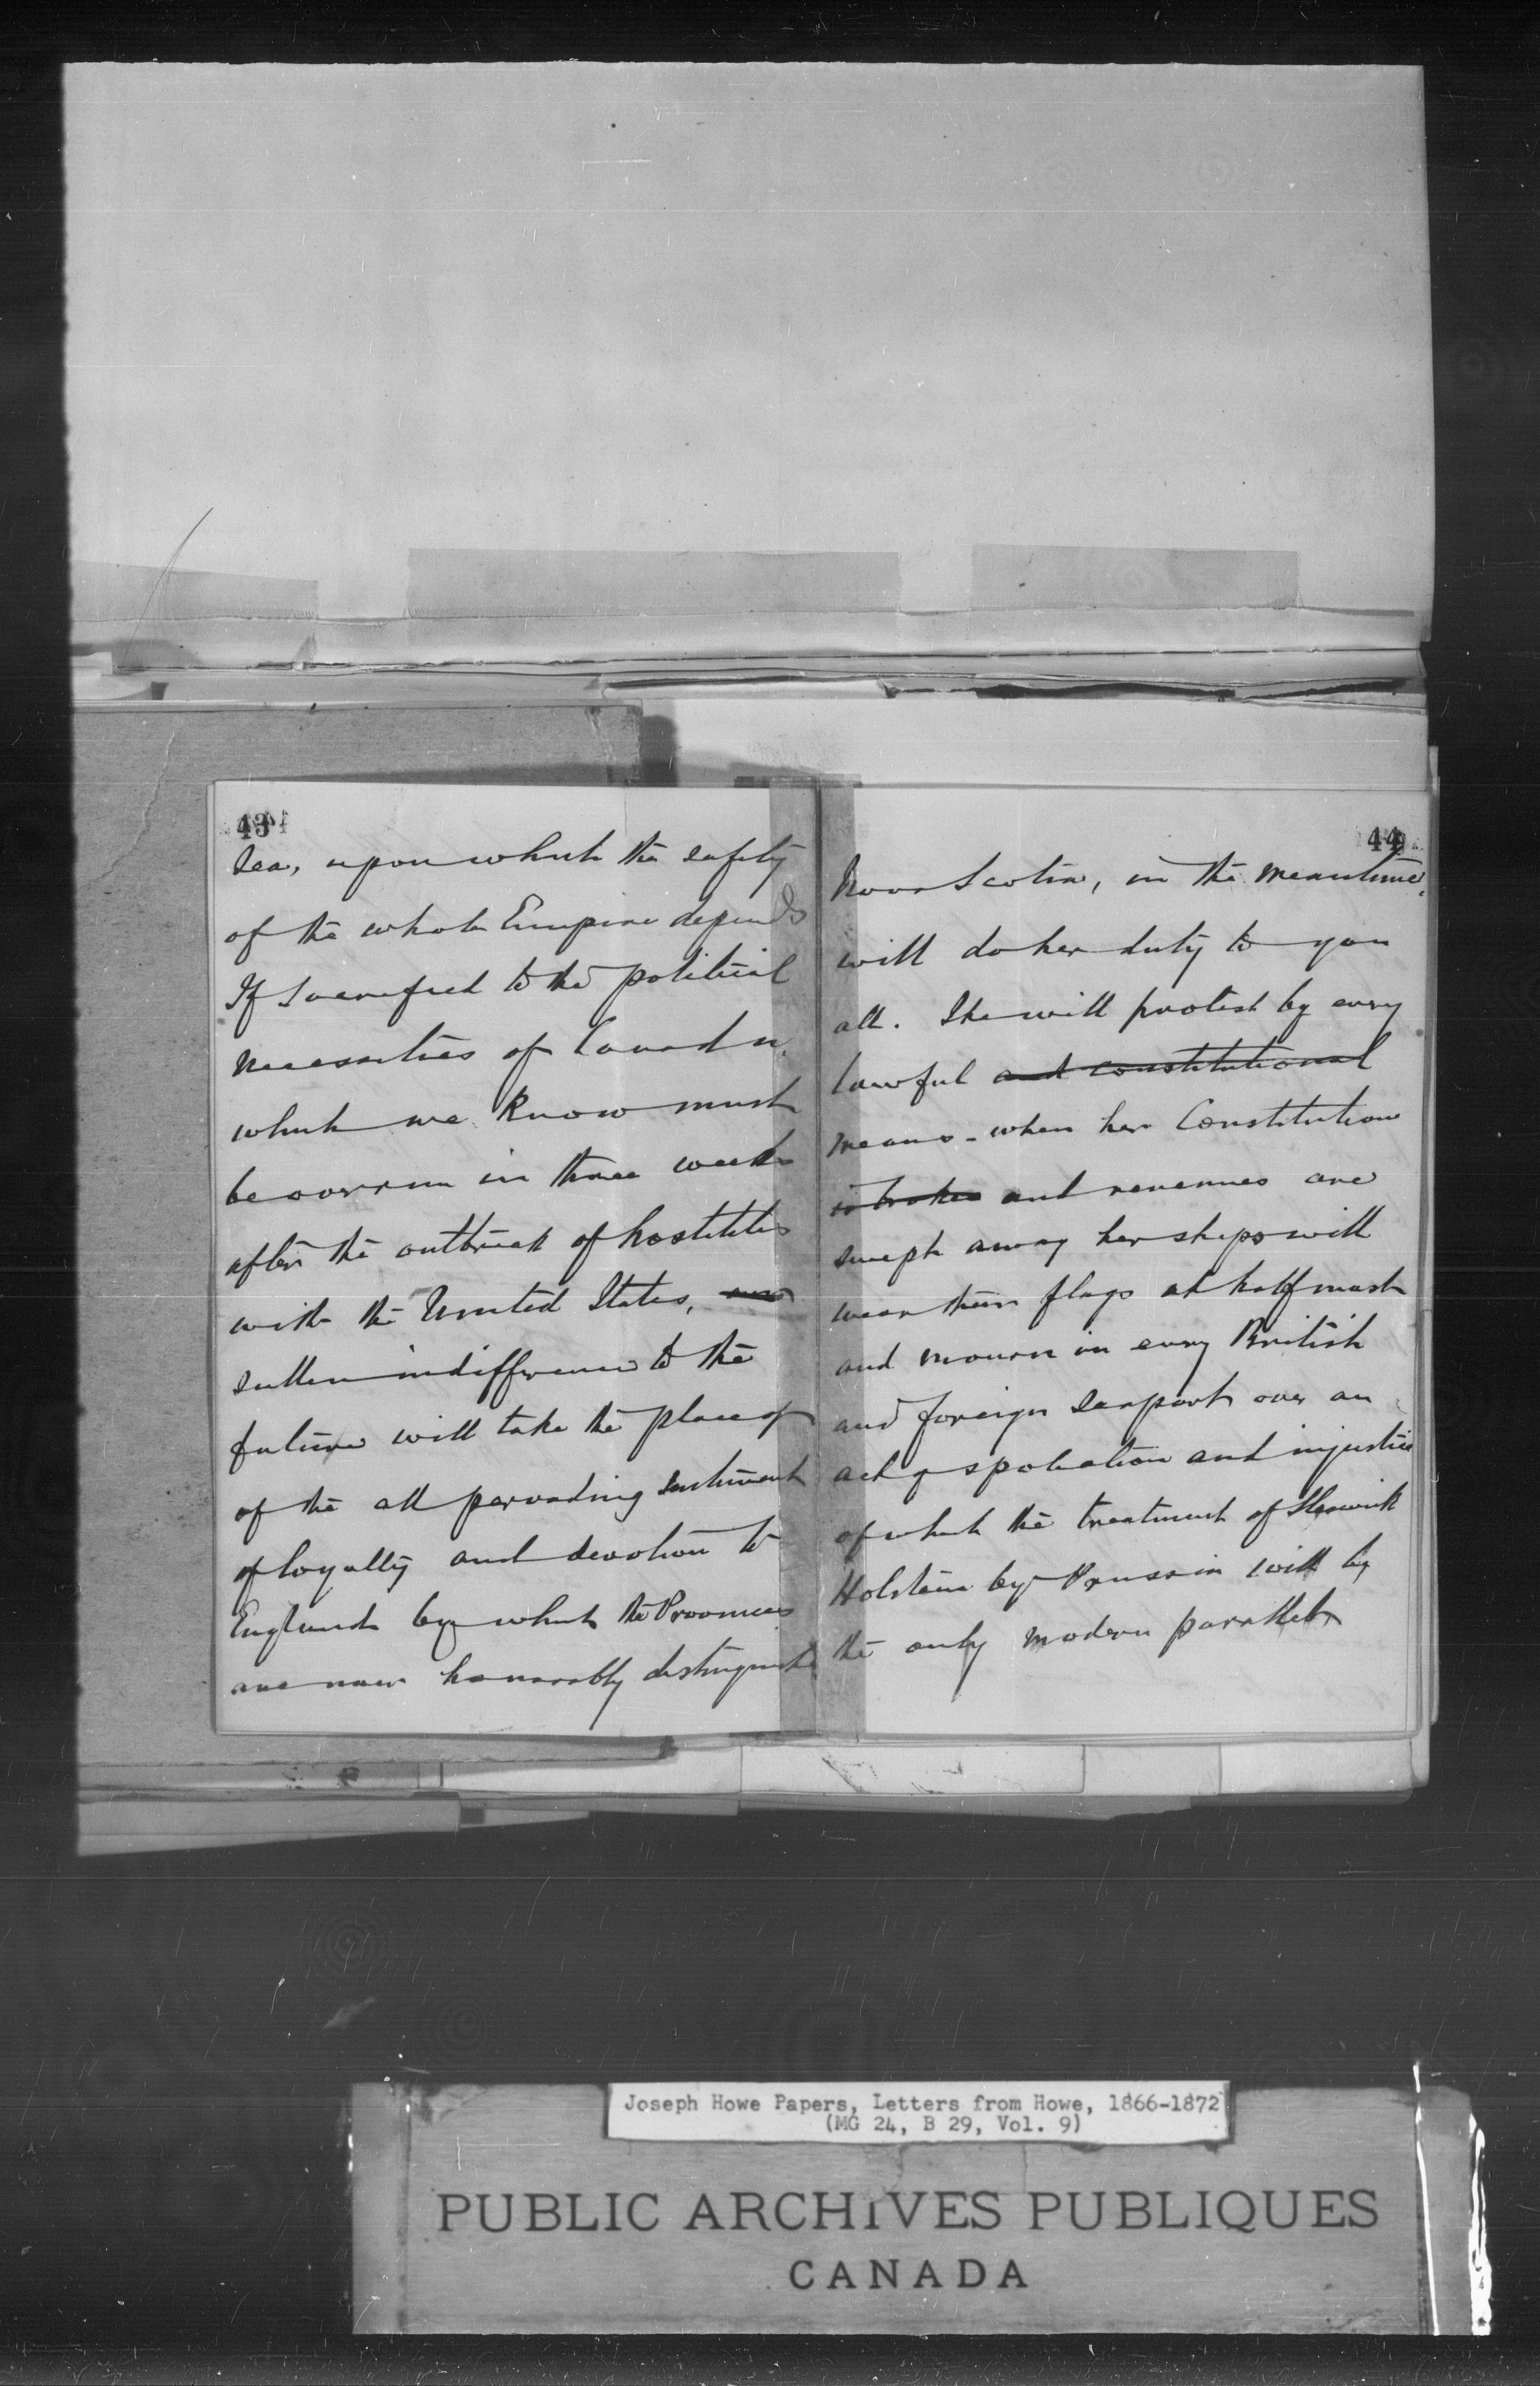 43
Sea, upon which the safety
of the whole Empire depends
If sacrificed to the political
necessities of Canada
which we know must
be overrun in three weeks
after the outbreak of hostilities
with the United States, and
sullen indifference to the
future will take the place of
of the all pervading sentiment
of loyalty and devotion to
England by which the Provinces
are now honorably distinguished
44
Nova Scotia, in the meantime,
will do her duty to you
all. She will protest by every
lawful and constitutional
means - when her Constitution
is broken and revenues are
swept away her ships will
wear their flags at half mast
and mourn in every British
and foreign seaport over an
act of spoliation and injustice
of which the treatment of Sleswick
Holstein by Prussia will be
the only modern parallel
Joseph Howe Papers, Letters from Howe, 1866-1872
(MG 24, B 29, Vol. 9)
PUBLIC ARCHIVES PUBLIQUES
CANADA